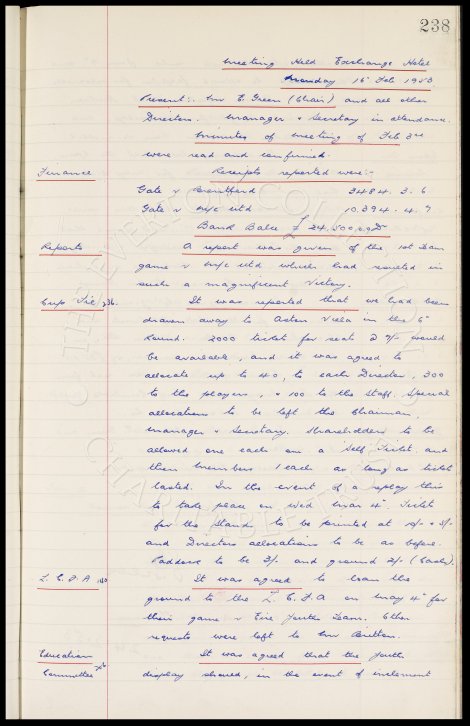 238
Meeting Held Exchange Hotel
Monday 16 Feb 1953.
Present:. Mr E. Green (Chair) and all other
Directors. Manager & Secretary in attendance.
Minutes of meeting of Feb 3rd
were read and confirmed.
Finance
Receipts reported were:-
Gate v Brentford 3484. 3. 6
Gate v M/c Utd 10,394. 4. 7
Bank Balce £ 24,500
Reports
A report was given of the 1st Team
game v M/c Utd which had resulted in
such a magnificent Victory.
Cup Tie 236.
It was reported that we had been
drawn away to Aston Villa in the 6th
Round. 2000 tickets for seats @ would
be available, and it was agreed to
allocate up to 40, to each Director, 300
to the players, & 100 to the Staff. Special
allocations to be left the Chairman,
Manager & Secretary. Shareholders to be
allowed one each on a Self Ticket and
then members 1 each as long as tickets
lasted. In the event of a replay this
to take place on Wed Mar 4th. Tickets
for the Stands to be printed at 10/- &
and Directors allocations to be as before.
Paddock to be 3/- and ground 2/- (Cash).
L. C. F. A
It was agreed to loan the
ground to the L. C. F. A on May 4th for
their game v Eire Youth Team. Other
requests were left to Mr Britton.
Education
It was agreed that the Youth
Committee
display should, in the event of inclement
THE EVERTON COLLECTION
CHARITABLE TRUST